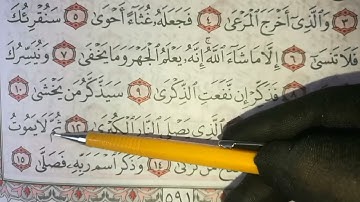 ٣ وَالَّذِي أَخْرَجَ الْمَرْعَىٰ ٤ فَجَعَلَهُ غُثَاءً أَحْوَىٰ ٥ سَنُقْرِئُكَ
فَلَا تَنسَىٰ ٦ إِلَّا مَا شَاءَ اللَّهُ إِنَّهُ يَعْلَمُ الْجَهْرَ وَمَا يَخْفَىٰ ٧ وَنُيَسِّرُكَ
فَذَكِّرْ إِن نَّفَعَتِ الذِّكْرَىٰ ٩ سَيَذَّكَّرُ مَن يَخْشَىٰ ١٠
الَّذِي يَصْلَى النَّارَ الْكُبْرَىٰ ١٢ ثُمَّ لَا يَمُوتُ
١٤ وَذَكَرَ اسْمَ رَبِّهِ فَصَلَّىٰ ١٥
٥٩١